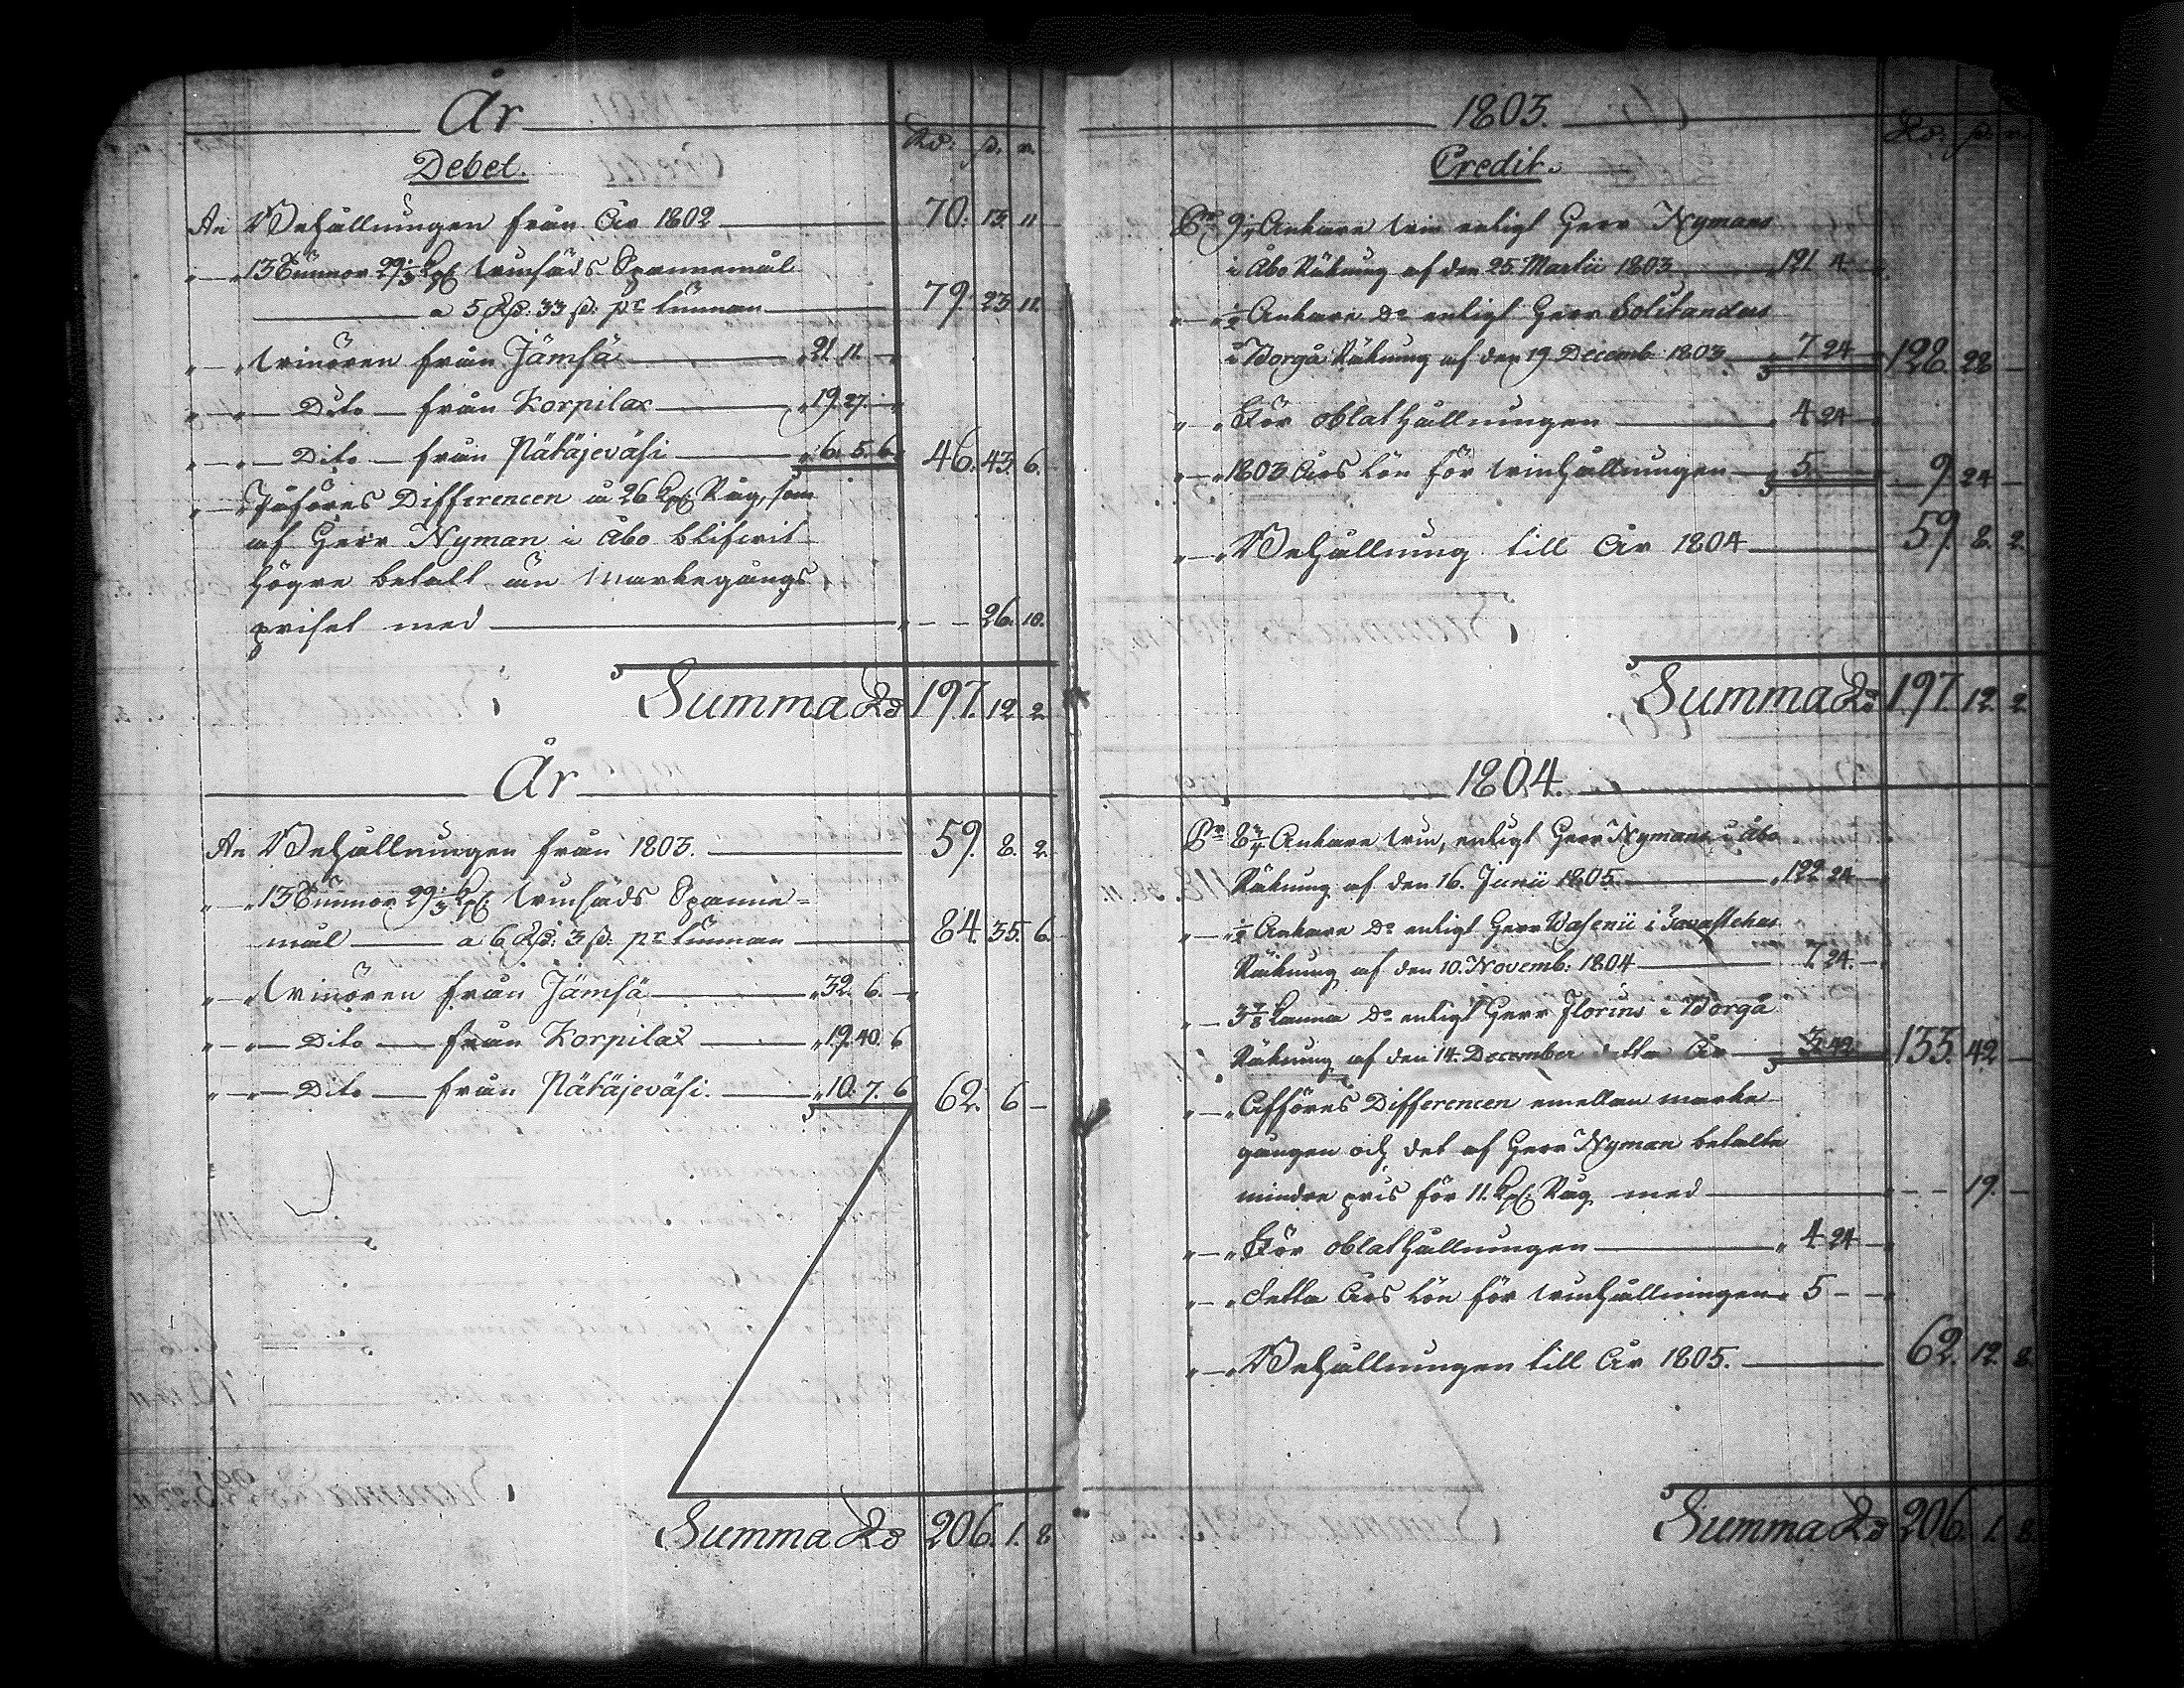 År
Debet.
Rd: ß. r.
An Behållningen från År 1802 70. 13. 11
" " 13 Tunnor 29⅓ Kpf. winsäds Spannemål
a 5 Rd: 33 ß. pr tunnan 79. 23. 11.
" " winören från Jämsä 21. 11. "
" " Dito från Korpilax 19. 27. "
" " Dito från Pätäjeväsi 6. 5. 6. 46. 43. 6.
" " Påföres Differencen å 26 Kpf. Råg, som
af Herr Nyman i Åbo blifwit
högre betalt än Markegångs
priset med 26. 10.
Summa Rd 197. 12. 2.
År
An Behållningen från 1803. 59. 8. 2.
" " 13 Tunnor 29⅓ Kpf. winsäds Spanne=
mål a 6 Rd: 3 ß. pr tunnan 84. 35. 6.
" " winören från Jämsä 32. 6. "
" " Dito från Korpilax 19. 40. 6
" " Dito från Pätäjeväsi. 10. 7. 6 62. 6 —
Summa Rd 206. 1. 8
1803.
Credit.
Rd: ß. r.
Pr 9 Ankare win enligt Herr Nymans
i Åbo Räkning af den 25 Martii 1803 121 4
" " ½ Ankare Do enligt Herr Solitandus
i Borgå Räkning af den 19 Decemb: 1803 7 24 128. 28 —
" " För oblathållningen 4 24
" " 1803 Års lön för winhållningen 5. 9 24 —
" " Behållning till År 1804 59. 8. 2.
Summa Rd 197. 12. 2
1804.
Pr 8 Ankare win, enligt Herr Nymans i Åbo
Räkning af den 16. Junii 1805. 122 24
" " ½ Ankare Do enligt Herr Wasenii i Tavastehus
Räkning af den 10. Novemb: 1804 7. 24.
" 3⅞ Kanna Do enligt Herr Florins i Borgå
Räkning af den 14. December detta År 3 42 133. 42 —
" " Afföres Differencen emellan marke
gången och det af Herr Nyman betalte
mindre pris för 11. Kpf. Råg med 19. —
" " För oblathållningen 4 24
" " detta Års lön för winhållningen 5 —
" " Behållningen till År 1805. 62. 12. 8
Summa Rd 206. 1. 8